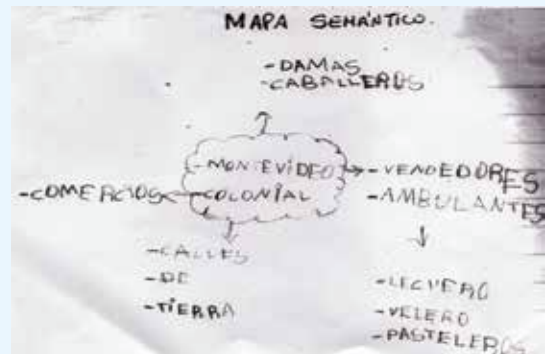 MAPA SEMÁNTICO.
-DAMAS
-CABALLEROS
-MONTEVIDEO
COLONIAL
-COMERCIOS
-VENDEDORES
-AMBULANTES
-CALLES
-DE
-TIERRA
-LECHERO
-VELERO
-PASTELEROS